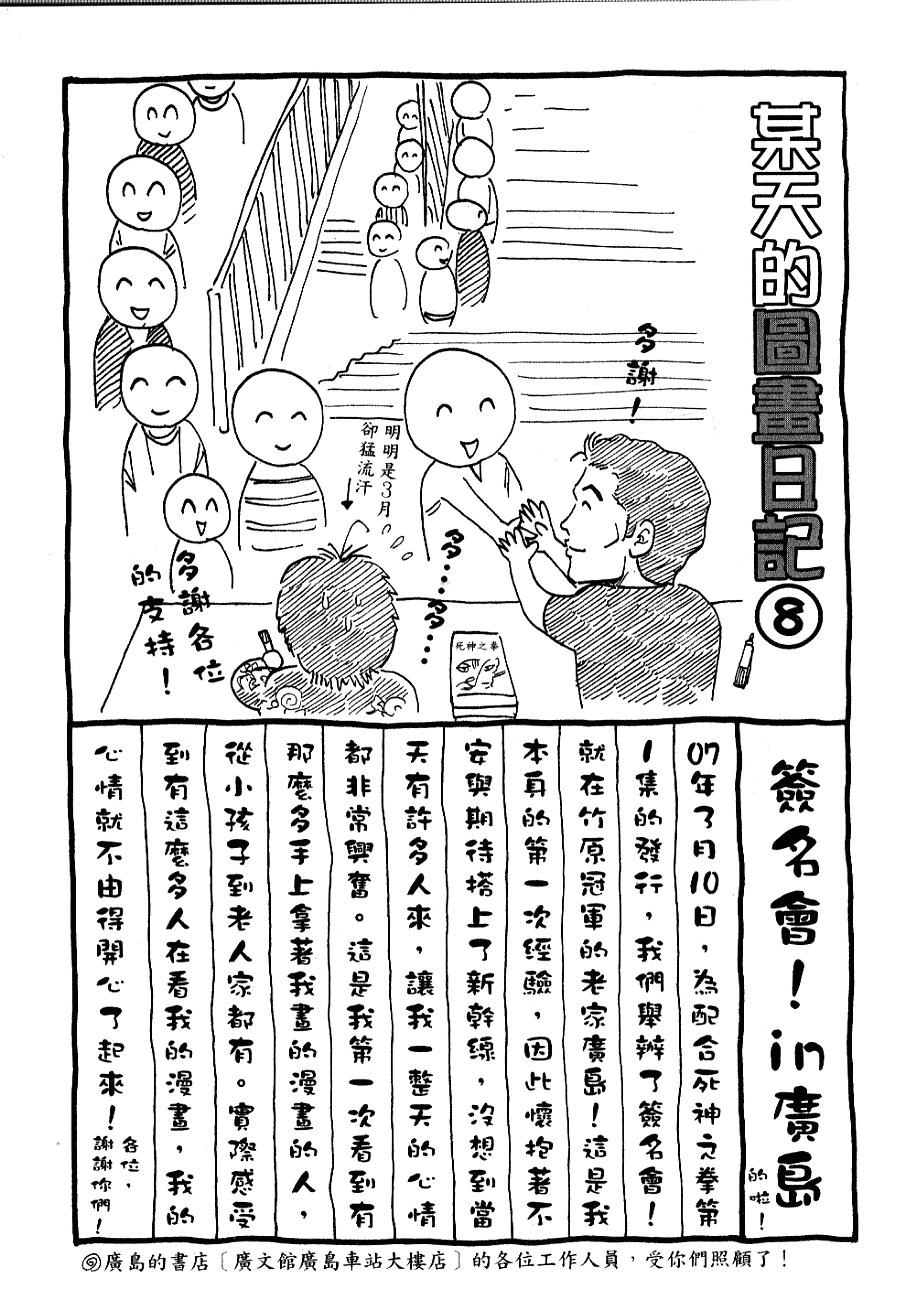 某天的圖畫日記⑧
多謝！
明明是3月
卻猛流汗
多…多…
死神之拳
多謝各位
的支持！
簽名會！in廣島
的啦！
07年3月10日，為配合死神之拳第
1集的發行，我們舉辦了簽名會！
就在竹原冠軍的老家廣島！這是我
本身的第一次經驗，因此懷抱著不
安與期待搭上了新幹線，沒想到當
天有許多人來，讓我一整天的心情
都非常興奮。這是我第一次看到有
那麼多手上拿著我畫的漫畫的人，
從小孩子到老人家都有。實際感受
到有這麼多人在看我的漫畫，我的
心情就不由得開心了起來！
各位，
謝謝你們！
◎廣島的書店〔廣文館廣島車站大樓店〕的各位工作人員，受你們照顧了！